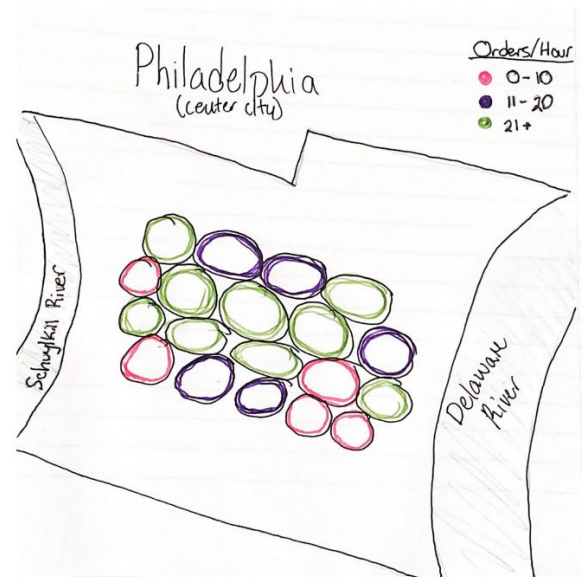 Philadelphia
(center city)
Orders/Hour
0-10
11-20
21+
Schuylkill River
Delaware
River